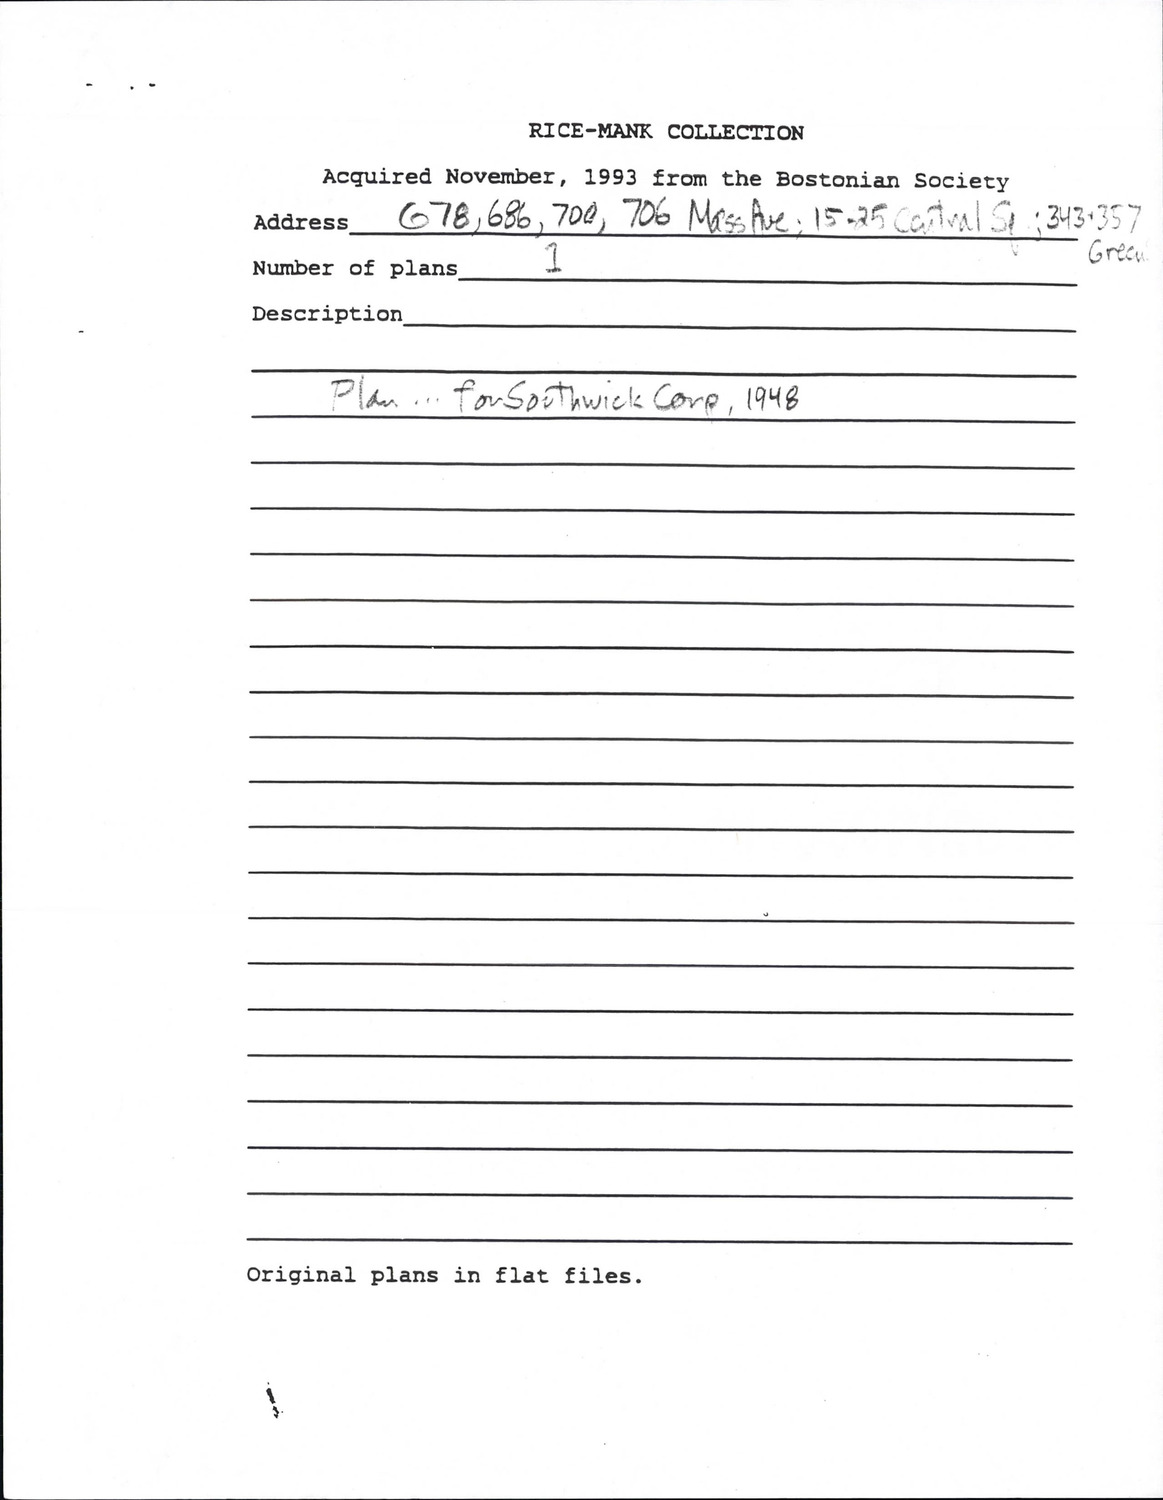 RICE-MANK COLLECTION
Acquired November, 1993 from the Bostonian Society
Address 678, 686, 700, 706 Mass Ave; 15-25 Central Sq; 343-357
Green
Number of plans 1
Description
Plan ... for Southwick Corp, 1948
Original plans in flat files.